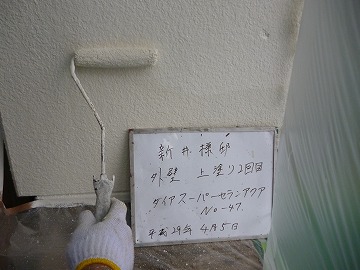 新井様邸
外壁 上塗り2回目
ダイヤスーパーセランアクア
No-47
平成29年4月5日